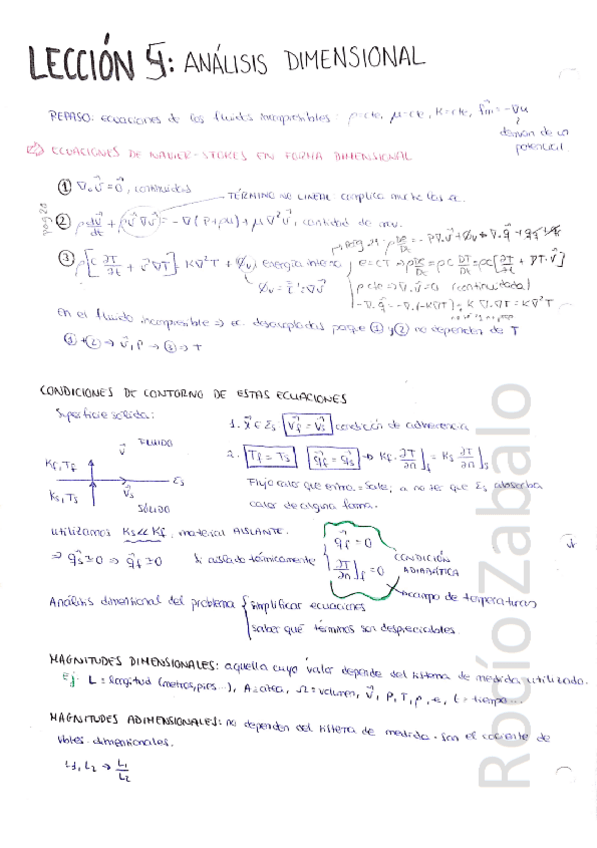 LECCIÓN 5: ANÁLISIS DIMENSIONAL
REPASO: ecuaciones de los fluidos incompresibles: ρ=cte, μ=cte, K=cte, f⃗m = -∇u
derivan de un potencial
ECUACIONES DE NAVIER-STOKES EN FORMA DIMENSIONAL
① ∇·v⃗ = 0, continuidad
TÉRMINO NO LINEAL complica mucho las ec.
pag 20
② ρ dv⃗/dt + ρv⃗∇v⃗ = -∇(P+ρu) + μ∇²v⃗, cantidad de mov.
③ ρ[c ∂T/∂t + v⃗∇T] = K∇²T + Φv, energía interna
Φv = τ̄':∇v⃗
ρ De/Dt = -P∇·v⃗ + Φv - ∇·q⃗
e=cT ⇒ ρ De/Dt = ρc DT/Dt = ρc[∂T/∂t + ∇T·v⃗]
ρ cte ⇒ ∇·v⃗ = 0 (continuidad)
-∇·q⃗ = -∇·(-K∇T) = K ∇·∇T = K∇²T
En el fluido incompresible ⇒ ec. desacopladas porque ① y ② no dependen de T
① + ② → v⃗, P → ③ → T
CONDICIONES DE CONTORNO DE ESTAS ECUACIONES
Superficie sólida:
1. x⃗ ∈ Σs v⃗f = v⃗s condición de adherencia
v⃗ FLUIDO
Kf, Tf
Σs
Ks, Ts
v⃗s
SÓLIDO
2. Tf = Ts q⃗f = q⃗s → Kf · ∂T/∂n]f = Ks ∂T/∂n]s
Flujo calor que entra = sale, a no ser que Σs absorba
calor de alguna forma.
utilizamos Ks<<Kf, material AISLANTE.
⇒ q⃗s ≃ 0 ⇒ q⃗f ≃ 0 Si aislado térmicamente
q⃗f = 0
∂T/∂n]f = 0
CONDICIÓN ADIABÁTICA
campo de temperaturas
Análisis dimensional del problema
simplificar ecuaciones
saber qué términos son despreciables.
MAGNITUDES DIMENSIONALES: aquella cuyo valor depende del sistema de medida utilizado.
ej. L = longitud (metros, pies...), A = área, Ω = volumen, v⃗, P, T, ρ, e, t = tiempo...
MAGNITUDES ADIMENSIONALES: no dependen del sistema de medida. Son el cociente de
vbles. dimensionales.
L1, L2 → L1/L2
Rocío Zabalo